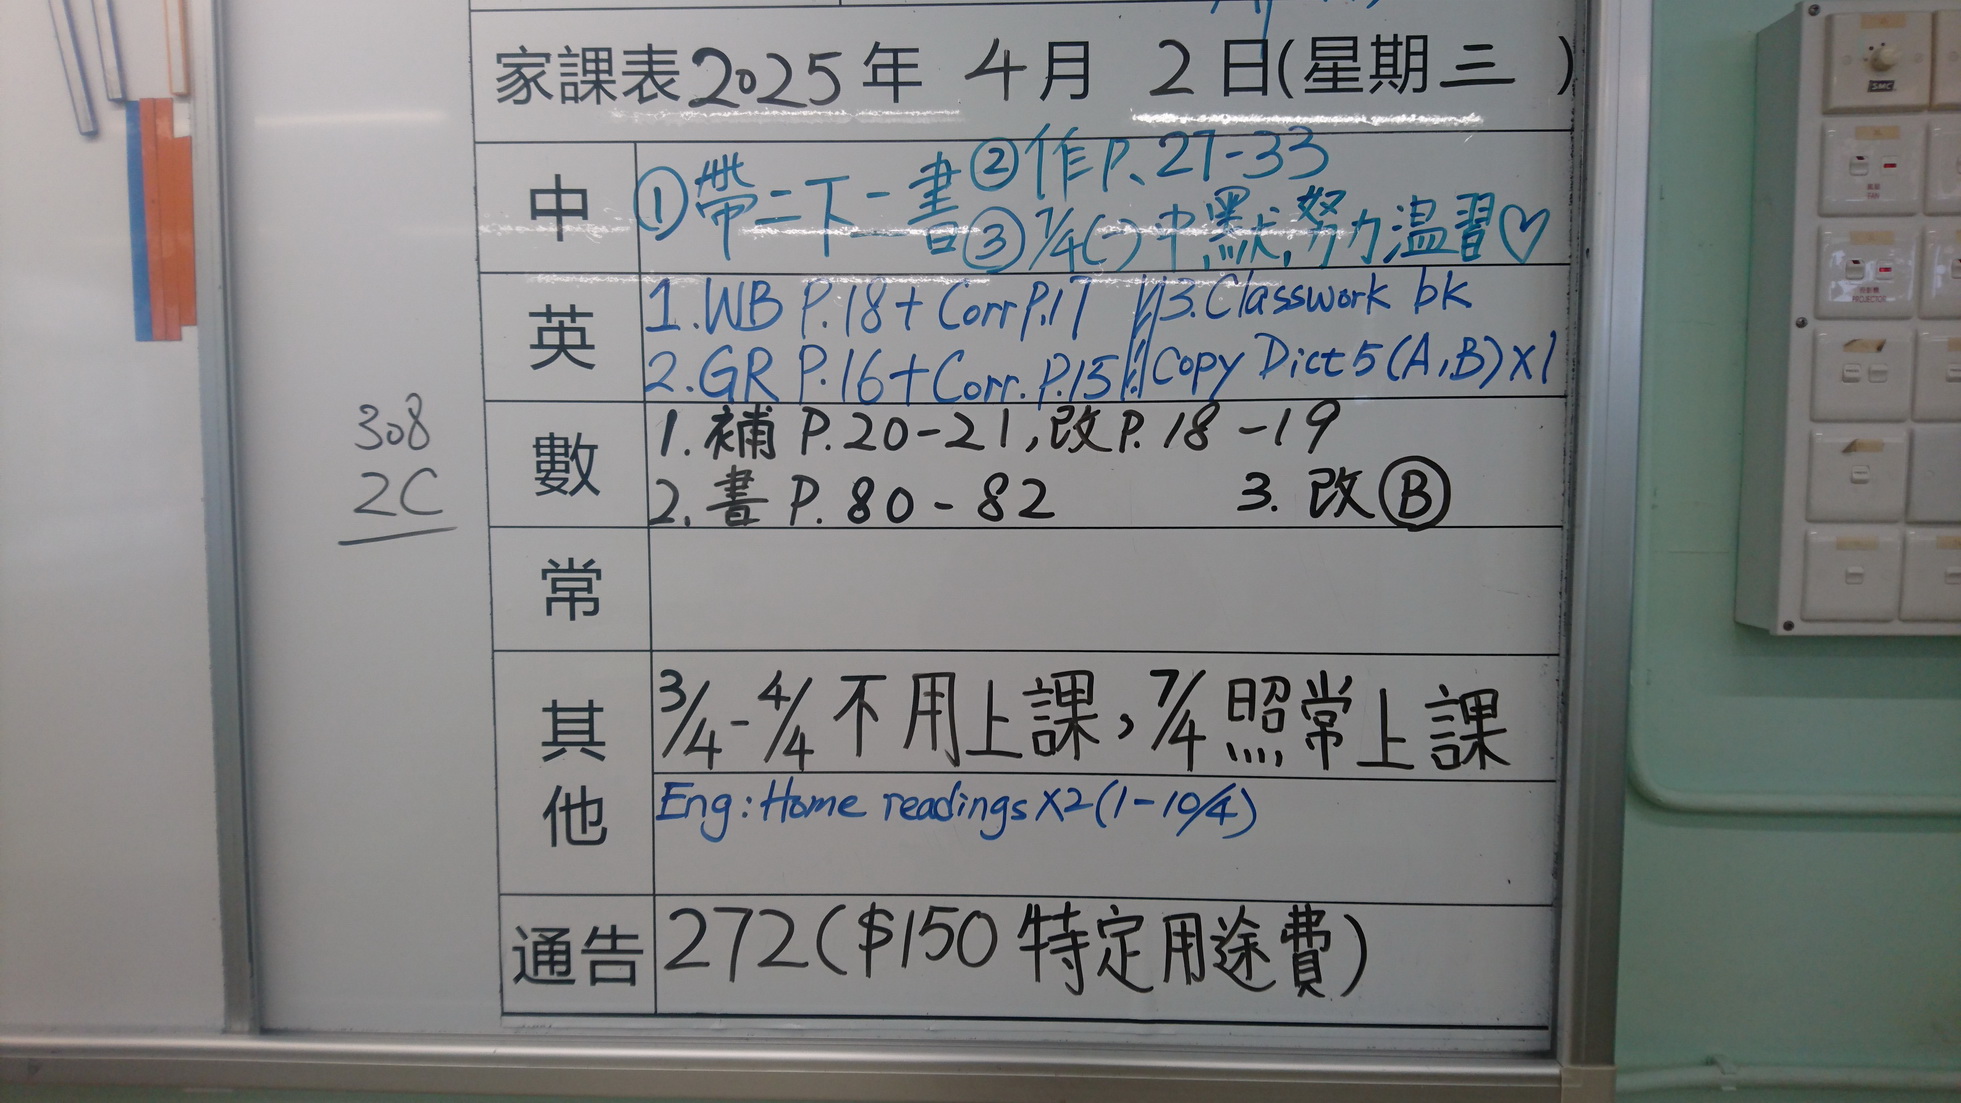 家課表2025年 4月 2日(星期三 )
中
①帶二下一書 ②作P.27-33
③7/4(一)中默,努力温習♡
英
1.WB P.18+ Corr P.17
2.GR P.16+Corr. P.15
3.Classwork bk
Copy Dict 5 (A,B)×1
308
2C
數
1.補 P.20-21,改P.18-19
2.書 P.80-82 3.改Ⓑ
常
其他
3/4-4/4 不用上課,7/4 照常上課
Eng:Home readings ×2(1-10/4)
通告
272($150特定用途費)
SMC
FAN
PROJECTOR